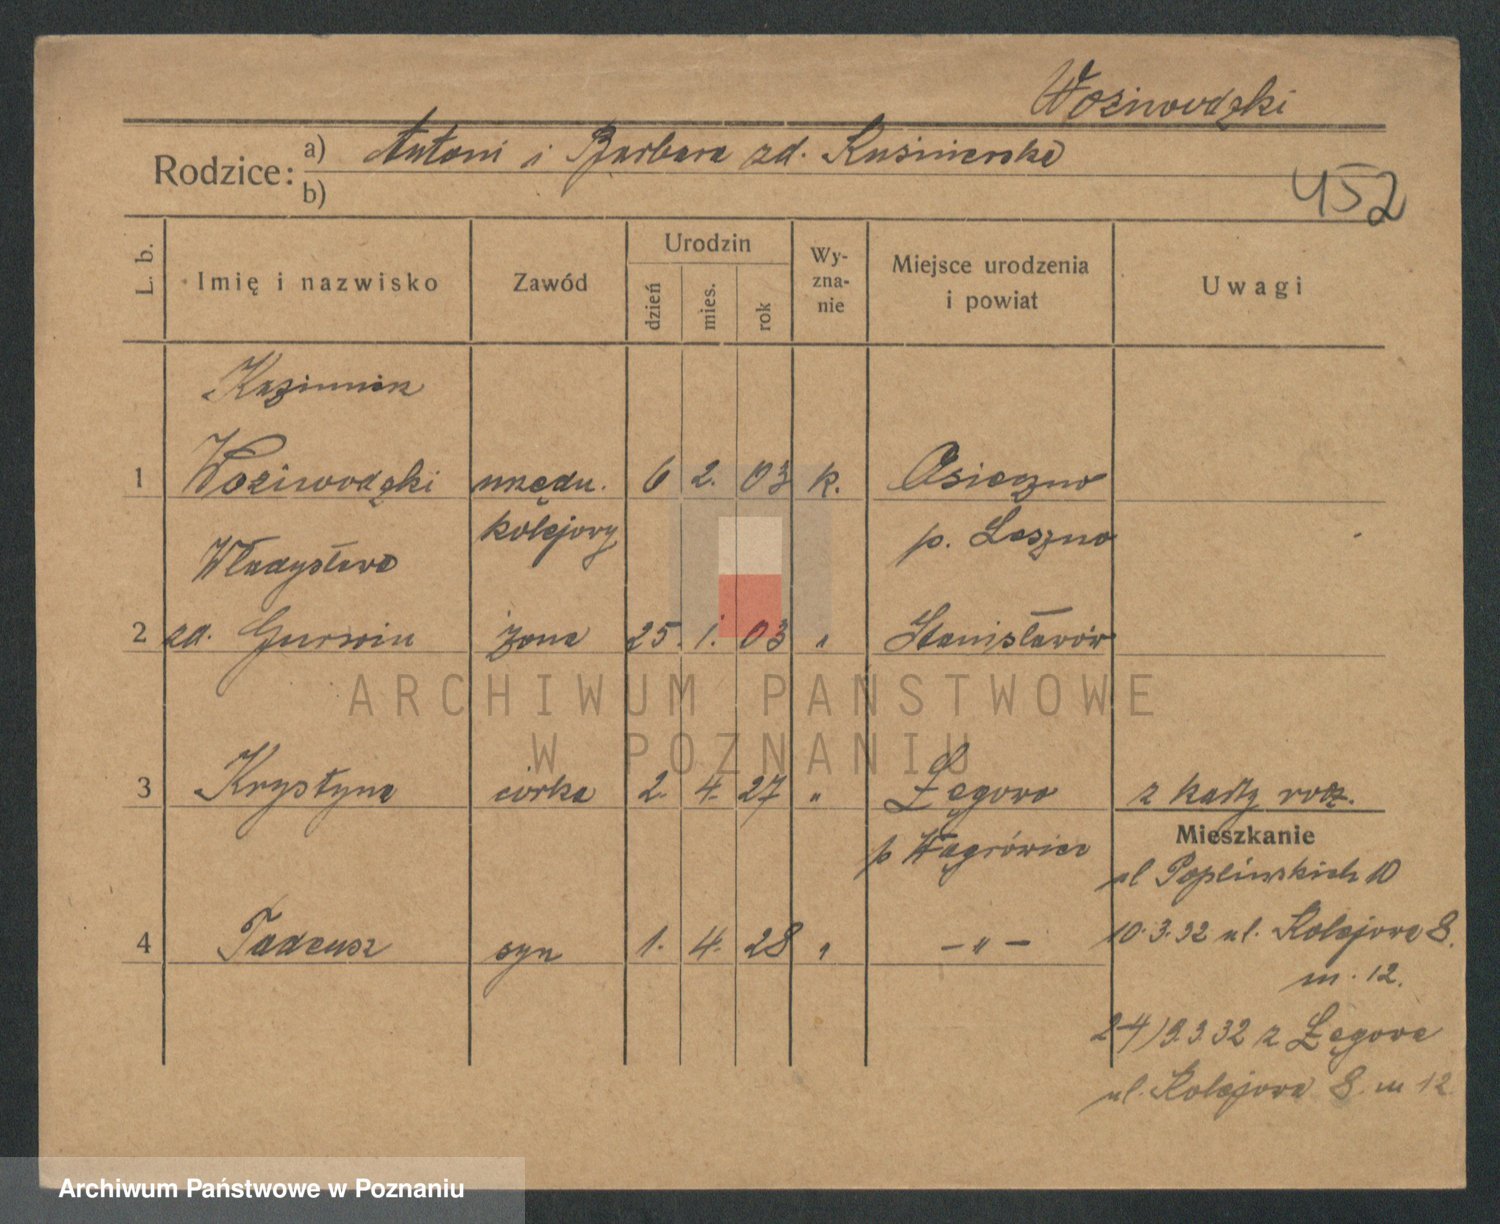 Woźiwodzki
Rodzice: a) Antoni i Barbara zd. Kuśnierska
b)
452
L. b.
Imię i nazwisko
Zawód
Urodzin
dzień
mies.
rok
Wy-
zna-
nie
Miejsce urodzenia
i powiat
Uwagi
Kazimierz
1 Woziwodzki urzędn. 6 2. 03 k. Osieczno
kolejowy p. Leszno
Władysława
2 zd. Gurwin żona 25. 1. 03 " Stanisławów
ARCHIWUM PAŃSTWOWE
W POZNANIU
3 Krystyna córka 2. 4. 27 " Łęgowo z karty rodz.
Mieszkanie
p Wągrówiec
ul Poplińskich 10
4 Tadeusz syn 1. 4. 28 " – " –
10.3.32 ul. Kolejowa 8.
m. 12.
2-4) 9.3.32 z Łęgowa
ul. Kolejowa 8. m 12
Archiwum Państwowe w Poznaniu